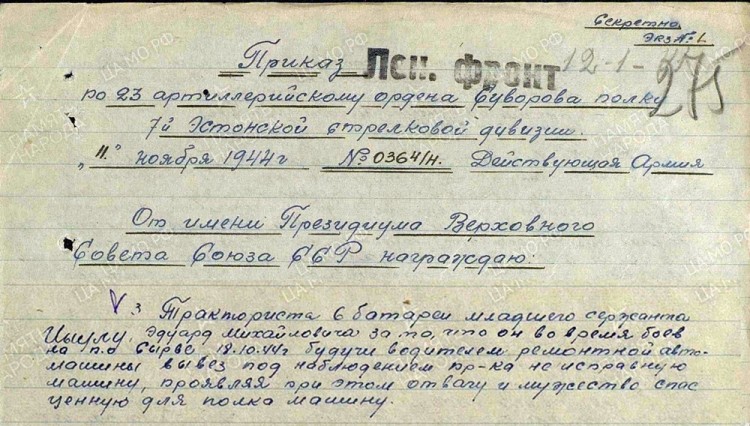 Секретно
Экз № 1.
Приказ Лен. фронт 12-1-
по 23 артиллерийскому ордена Суворова полку
7й Эстонской стрелковой дивизии.
"11." ноября 1944г №0364/н. Действующая Армия
От имени Президиума Верховного
Совета Союза ССР награждаю:
V 3 Тракториста 6 батареи младшего сержанта
Эдуард Михайловича за то, что он во время боев
на п-о Сырве 18.10.44г будучи водителем ремонтной авто-
машины вывез под наблюдением пр-ка не исправную
машину, проявляя при этом отвагу и мужество спас
ценную для полка машину.